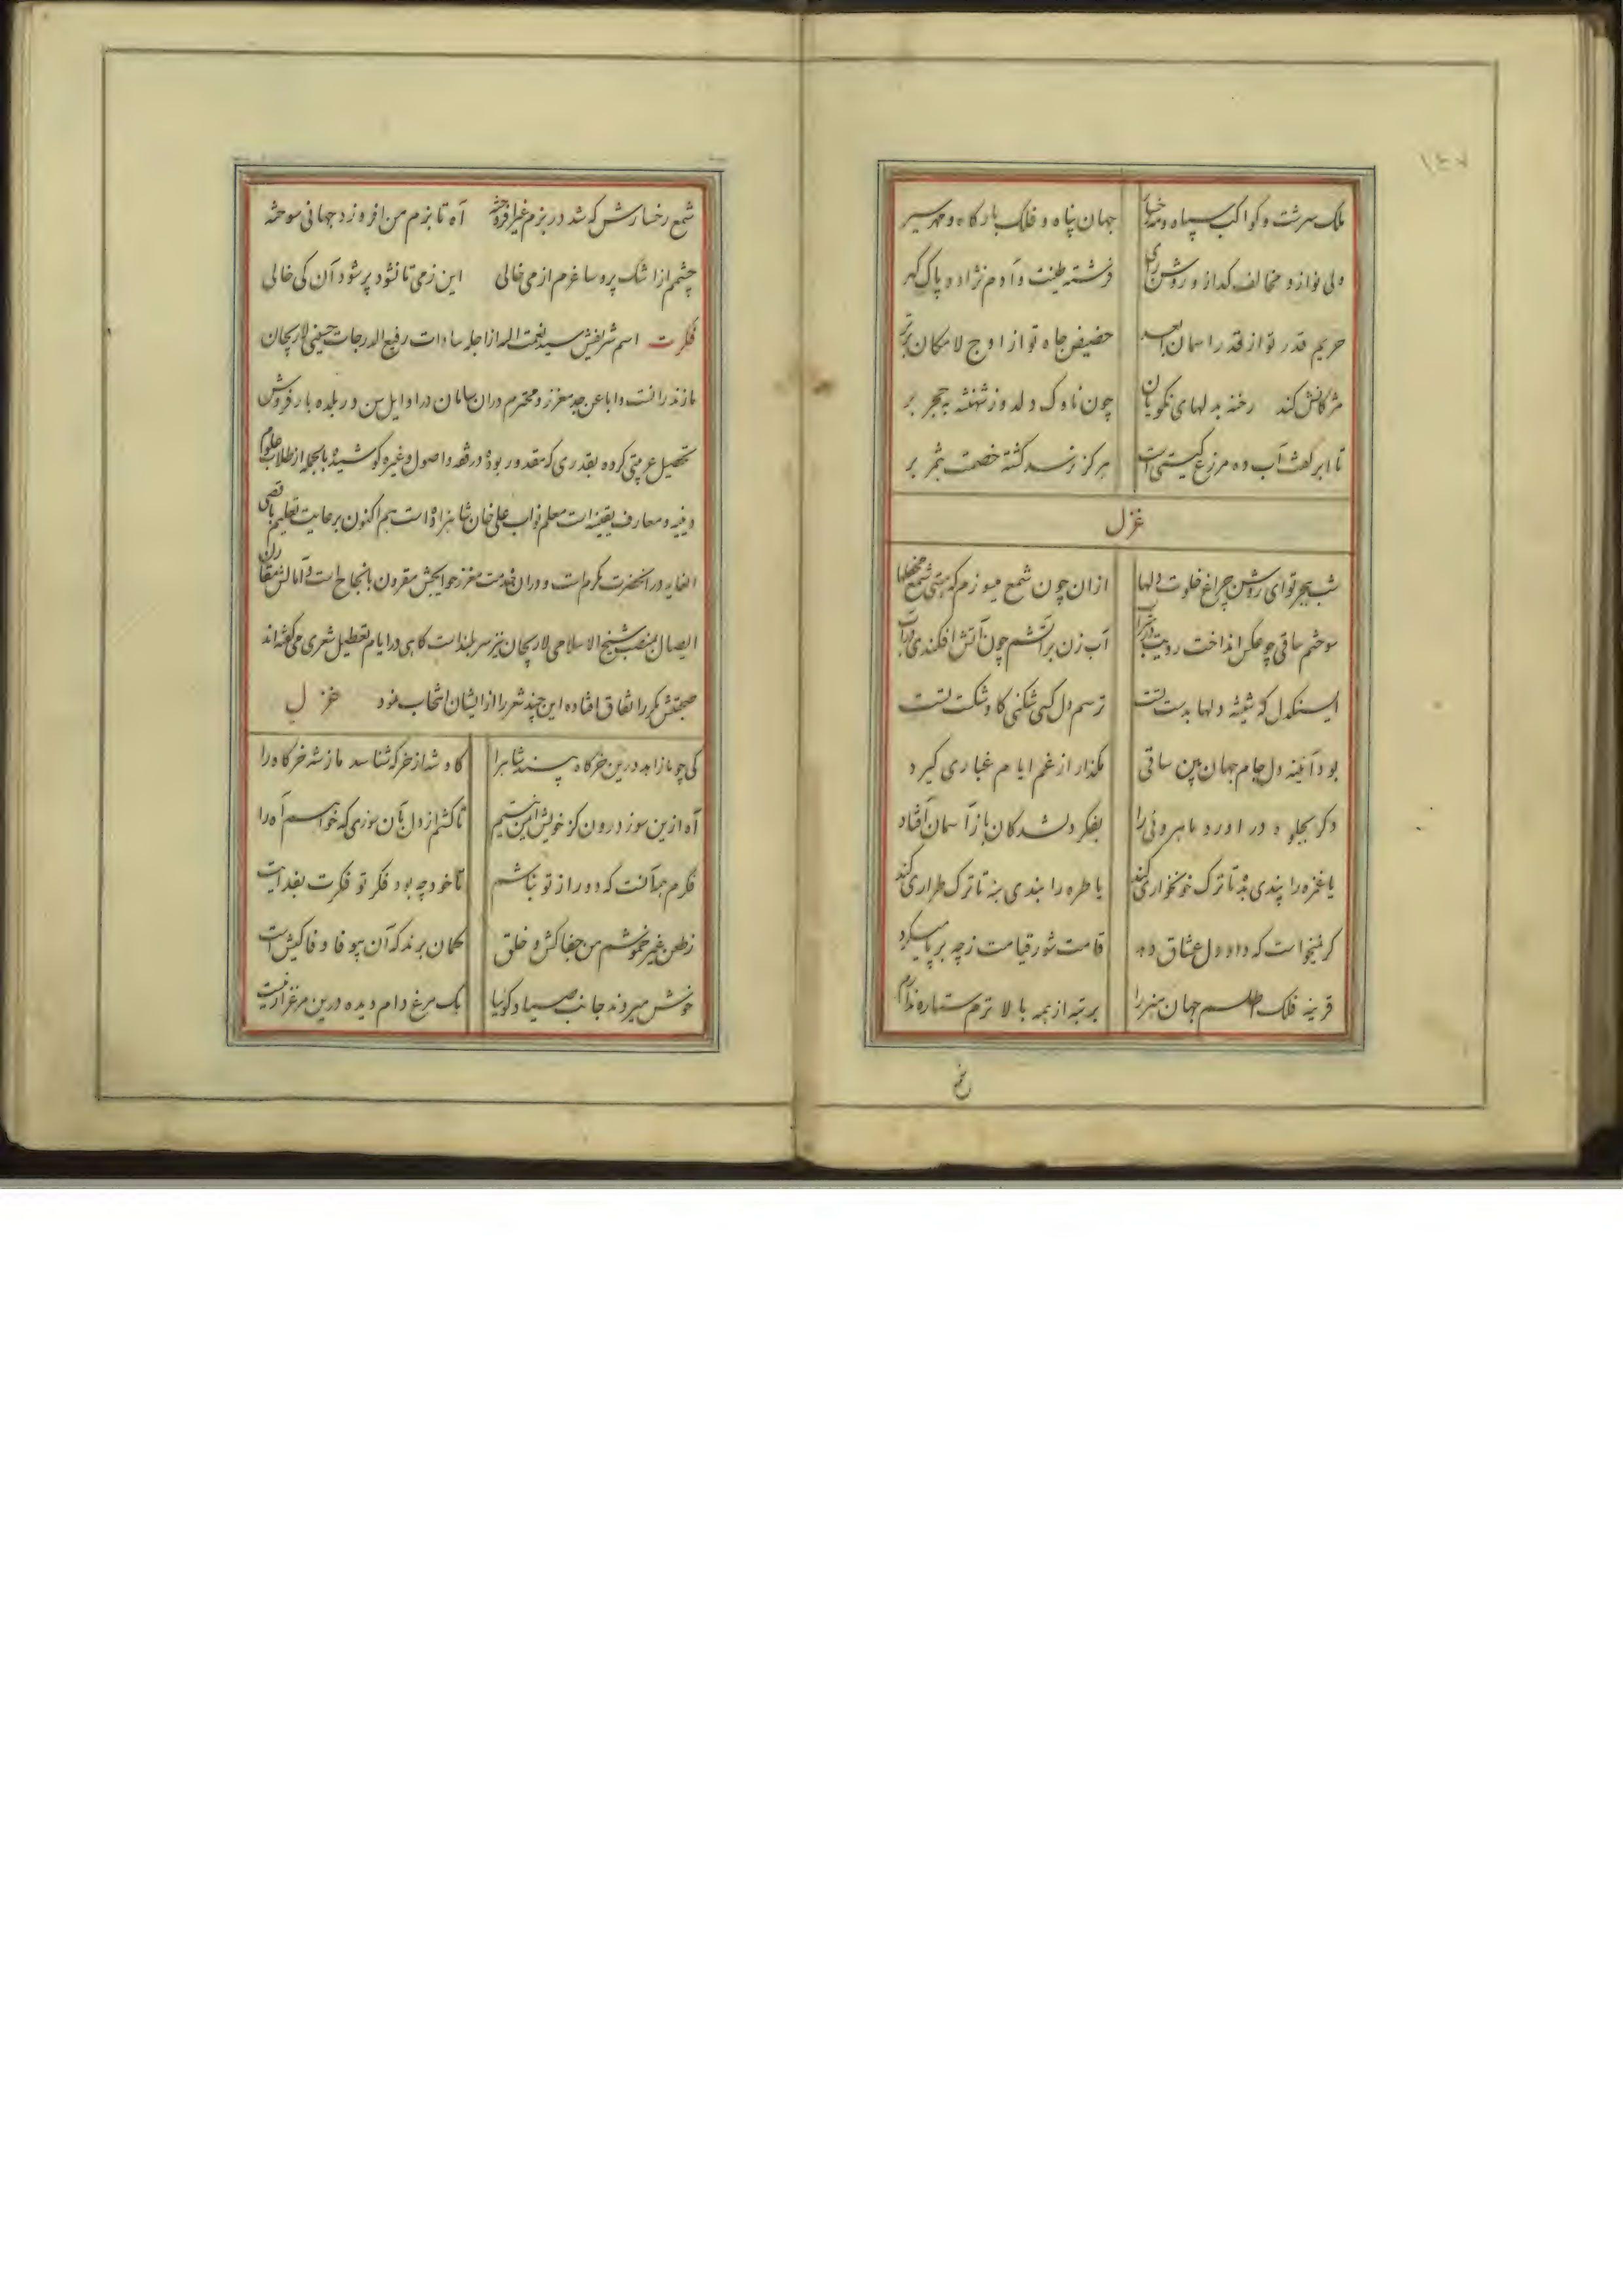 ملک سرشت و کواکب سپاه و مه رخسار جهان پناه و فلک بارکاه و مهر سریر
ولی نواز و مخالف کداز و روشن رای فرشته طینت و آدم نژاد و پاک کهر
حریم قدر تو از قدر آسمان ابعد حضیض جاه تو از اوج لامکان برتر
مژکانش کند رخنه بدلهای نکویان چون ناوک دلدوز شهنشه بحجر بر
تا ابر کفت آب ده مزرع کیتی است هرکز نرسد کشته خصمت بثمر بر
غزل
شب هجر تو ای روشن چراغ خلوت دلها ازان چون شمع میسوزم که هستی شمع محفلها
سوختم ساقی چو عکس انداخت رویت در شراب آب زن بر آتشم چون آتش افکندی در آب
ای سنکدل که شیشه دلها بدست تست ترسم دل کسی شکنی کاو شکست تست
بود آئینه دل جام جهان بین ساقی مکذار از غم ایام غباری کیرد
دکر بجلوه در آورد ماهروئی را بفکر دلشدکان باز آسمان افتاد
یا غمزه را پندی بده تا ترک خونخواری کند یا طره را بندی بنه تا ترک طراری کند
کر نمیخواست که داد دل عشاق دهد قامت شور قیامت ز چه بر پا میکرد
قرینه فلک طلسم جهان هنر را برتبه از همه بالاترم ستاره ندارم
شمع رخسارش که شد در بزم غیر افروخته آه تا بزم من افروزد جهانی سوخته
چشمم از اشک پر و ساغرم از می خالی این ز می تا نشود پر شود آن کی خالی
فکرت اسم شریفش سید نعمت اله از اجله سادات رفیع الدرجات حسینی لاریجان
مازندرانست و ابا عن جد معزز و محترم دران سامان در اوایل سن در بلده بارفروش
تحصیل عربیتی کرده بقدری که مقدور بوده در فقه و اصول و غیره کوشیده بالجمله از طلاب علوم
دینیه و معارف یقینه است معلم نواب علی خان شاهزاده است هم اکنون برعایت تعلیم باقصی
الغایه در انحضرت مکرم است و دران خدمت معزز حوایجش مقرون بانجاح است و آمالش مقارن
ایصال بمنصب شیخ الاسلامی لاریجان نیز سربلند است کاهی در ایام تعطیل شعری می کفته اند
صحبتش مکرر اتفاق افتاده این چند شعر را از ایشان انتخاب نمود غزل
کی چو ما زاهد درین خرکاه بیند شاه را کاو شد از خرکه شناسد ما ز شه خرکاه را
آه ازین سوز درون کز خویش ایمن نیستم تا کشم از دل بآن سوزی که خواهم آه را
فکرم همه آنست که دور از تو نباشم تا خود چه بود فکر تو فکرت بفدایت
ز طعن غیر خموشم من جفاکش و خلق کمان برند که آن بیوفا وفا کیش است
خوش میرود جانب صیاد کوئیا یک مرغ دام دیده درین مرغزار نیست